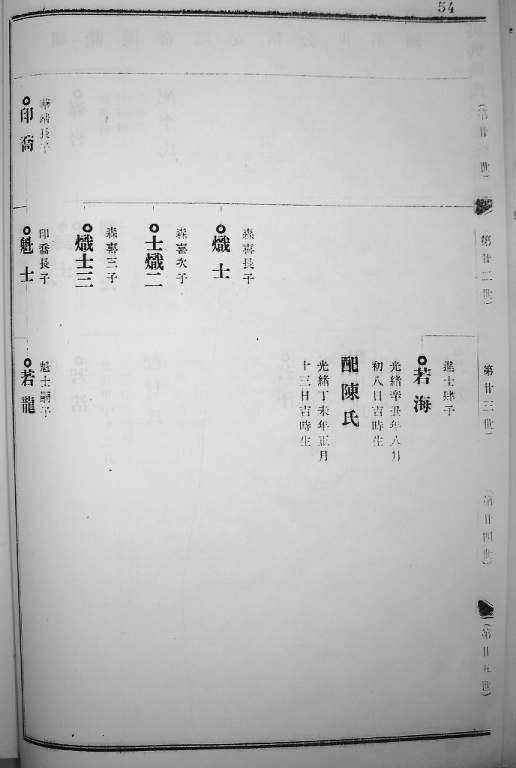 54
(第廿一世)
(第廿二世)
第廿三世)
(第廿四世)
(第廿五世)
進士肆子
若海
光緒辛丑年八月
初八日吉時生
配陳氏
光緒丁未年正月
十三日吉時生
森喜長子
熾士
森喜次子
士熾二
森喜三子
熾士三
長子
印喬
印喬長子
魁士
魁士嗣子
若龍